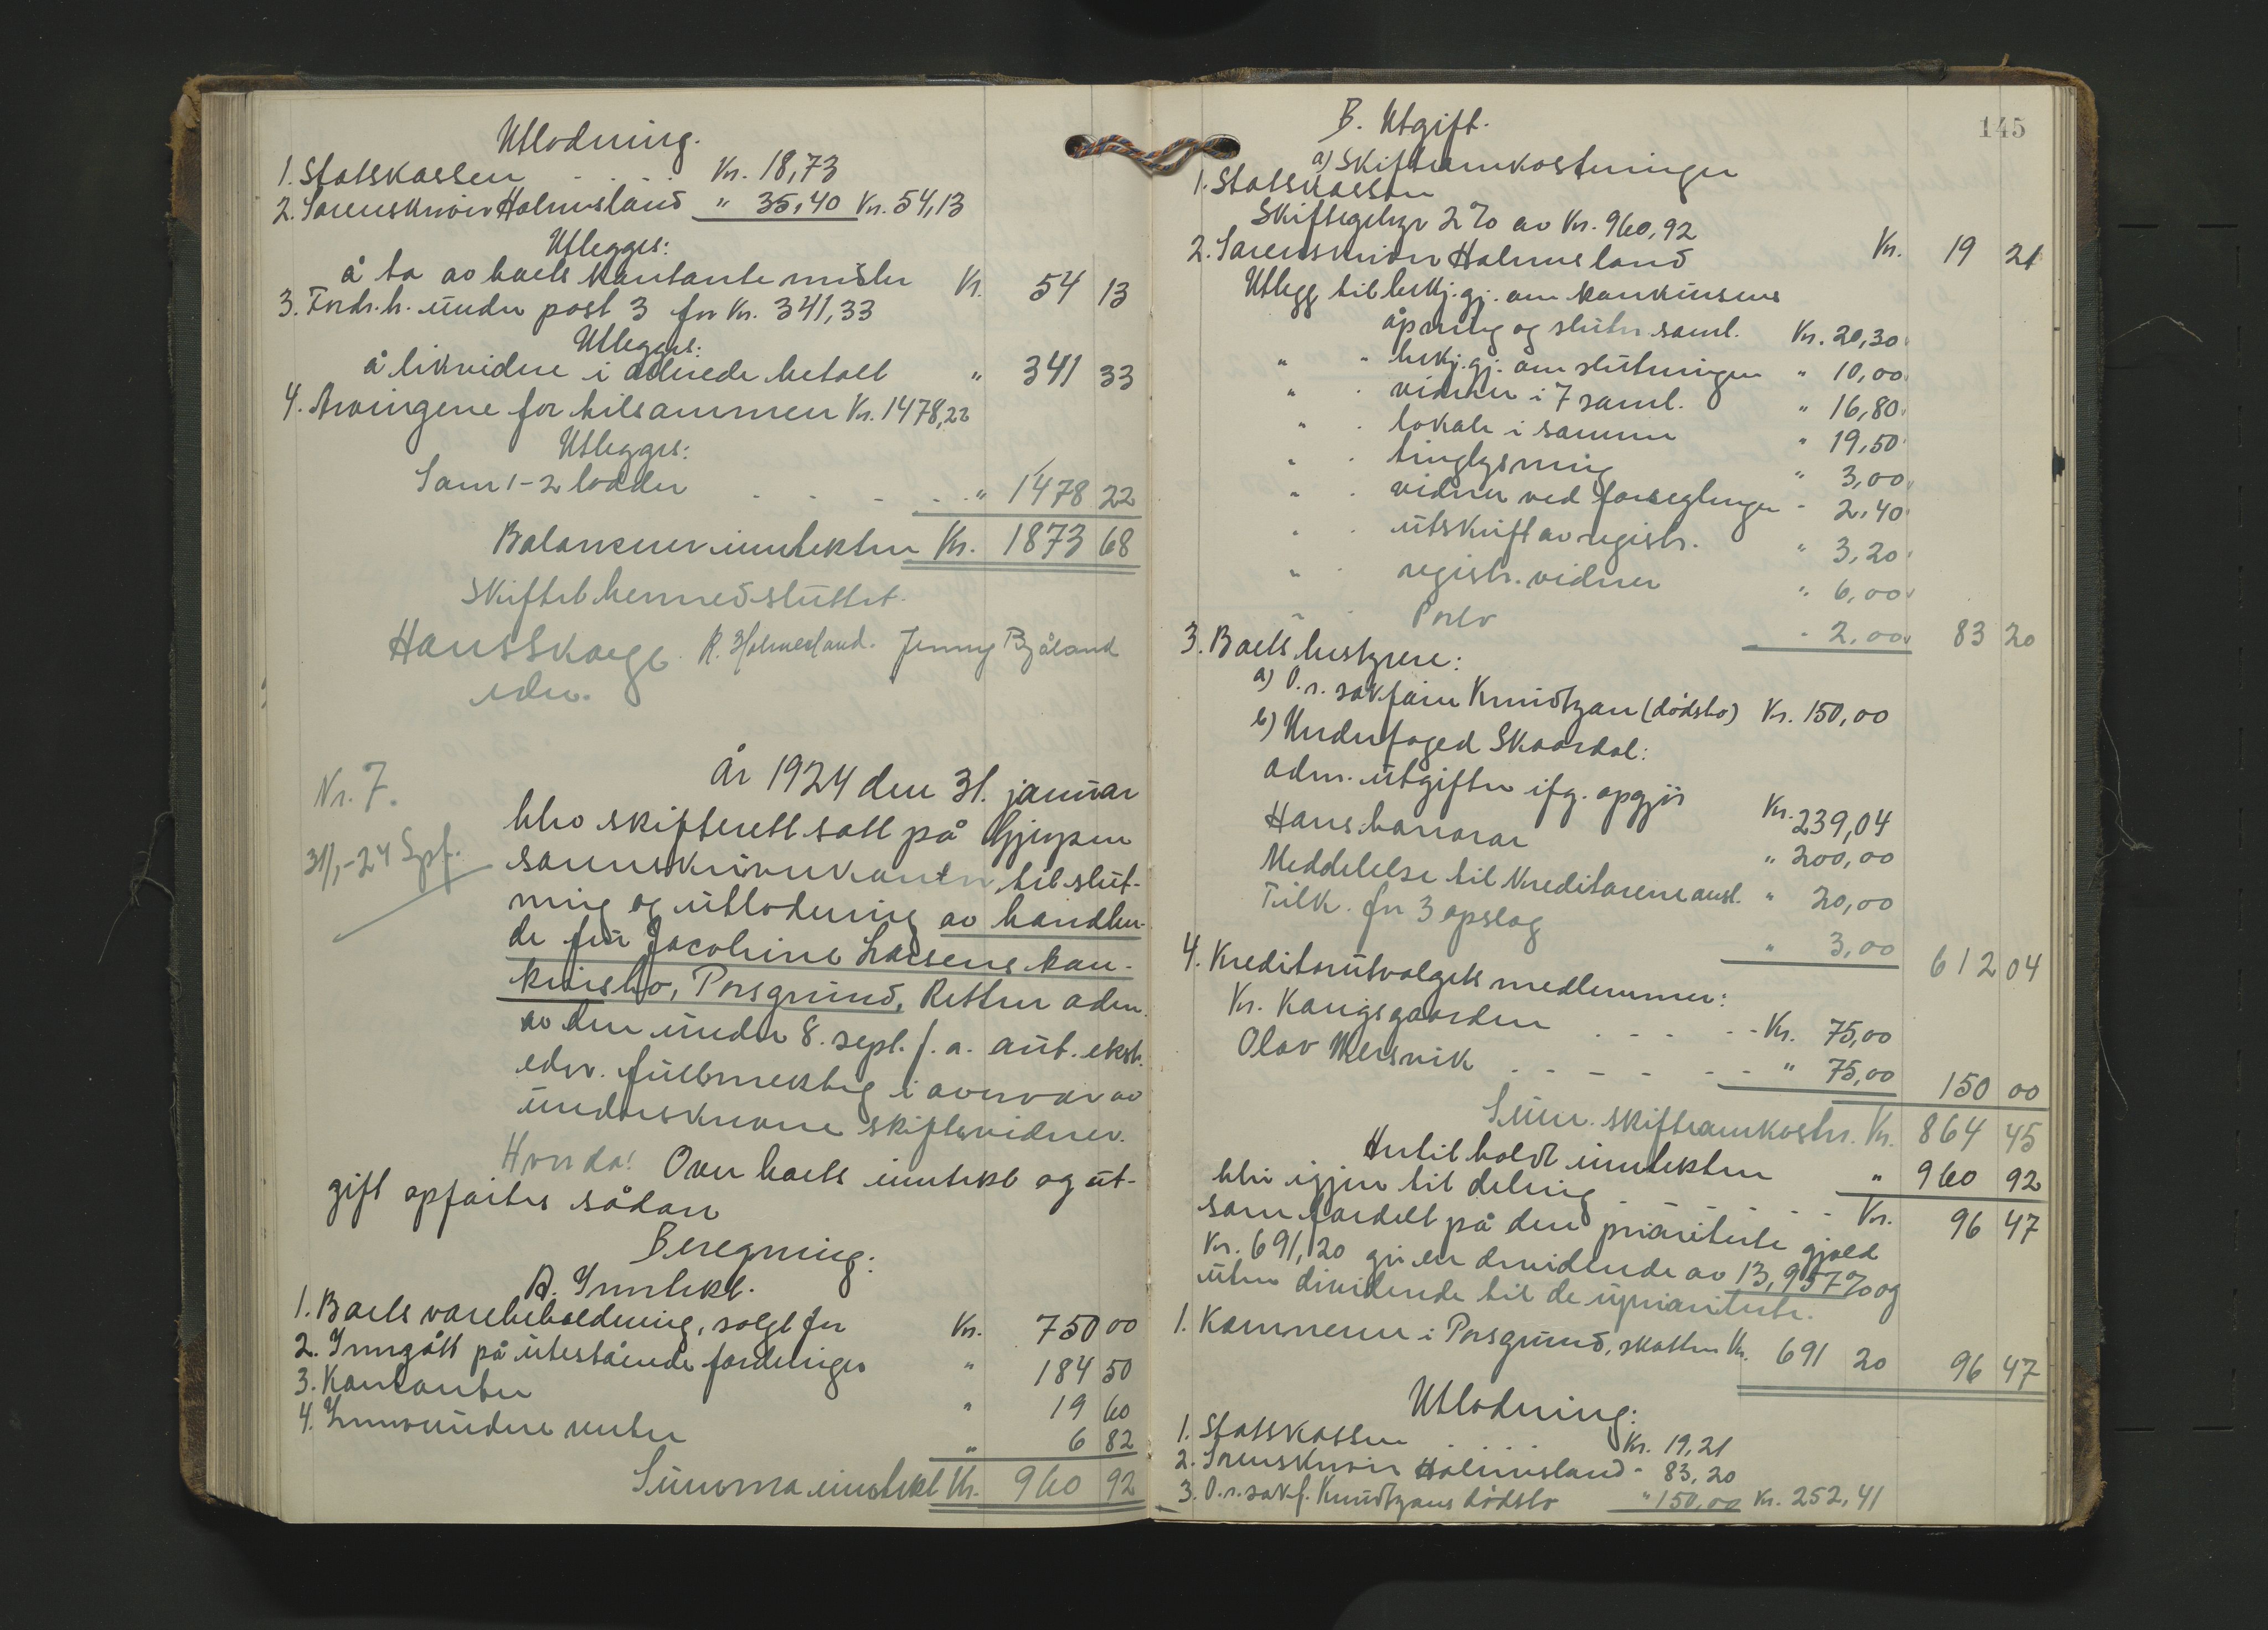 Utlodning.
1. Statskassen . . . . Kr. 18,73
2. Sorenskriver Holmesland " 35,40 Kr. 54,13
Utlegges:
å ta av boets kontante midler Kr. 54 13
3. Fordr.h. under post 3 for Kr. 341,33
Utlegges:
å likvidere i allerede betalt " 341 33
4. Arvingene for tilsammen Kr. 1478,22
Utlegges:
Som 1-2 lodder . . . . " 1478 22
Balanserer inntekten Kr. 1873 68
Skiftet hermed sluttet.
Hans Skoge R. Holmesland. Jenny Bjåland
edv.
Nr. 7.
31/1-24 Spf.
År 1924 den 31. januar
blev skifterett satt på Gjerpen
sorenskriverkontor, til slut-
ning og utlodning av handlen-
de fru Jacobine Larsens kon-
kursbo, Porsgrund. Retten adm.
av den under 8. sept. f. a. aut. ekstr.
edsv. fullmektig i overvær av
underskrevne skiftevidner.
Hvorda! Over boets inntekt og ut-
gift opførtes sådan
Beregning:
A. Inntekt.
1. Boets varebeholdning, solgt for Kr. 750 00
2. Inngått på utestående fordringer " 184 50
3. Kontanter " 19 60
4. Innvundne renter " 6 82
Summa inntekt Kr. 960 92
145
B. Utgift.
a) Skifteomkostninger
1. Statskassen
Skiftegebyr 2% av Kr. 960,92 Kr. 19 21
2. Sorenskriver Holmesland
Utlegg til bekj.gj. om konkursens
åpning og slutn. saml. Kr. 20,30
" " bekj.gj. om slutningen " 10,00
" " vidner i 7 saml. " 16,80
" " lokale i samme " 19,50
" " tinglysning " 3,00
" " vidner ved forseglingen " 2,40
" " utskrift av registr. " 3,20
" " registr. vidner " 6,00
" " Porto " 2,00 83 20
3. Boets bestyrere:
a) O.r. sakfører Knudtzon (dødsbo) Kr. 150,00
b) Underfoged Skaardal:
adm. utgifter ifg. opgjør Kr. 239,04
Hans honorar " 200,00
Meddelelse til kreditorene ansl. " 20,00
Tilk. for 3 opslag " 3,00 612 04
4. Kreditorutvalgets medlemmer:
Kr. Kongsgaarden . . . . Kr. 75,00
Olav Mersvik . . . . . " 75,00 150 00
Sum. skifteomkostn. Kr. 864 45
Hertil holdt inntekten " 960 92
blir igjen til deling . . . . Kr. 96 47
som fordelt på den prioriterte gjæld
Kr. 691,20 gir en dividende av 13,957% og
uten dividende til de uprioriterte.
1. Kemneren i Porsgrund, skatter Kr. 691 20 96 47
Utlodning:
1. Statskassen . . . . Kr. 19,21
2. Sorenskriver Holmesland " 83,20
3. O.r.sakf. Knudtzons dødsbo " 150,00 Kr. 252,41